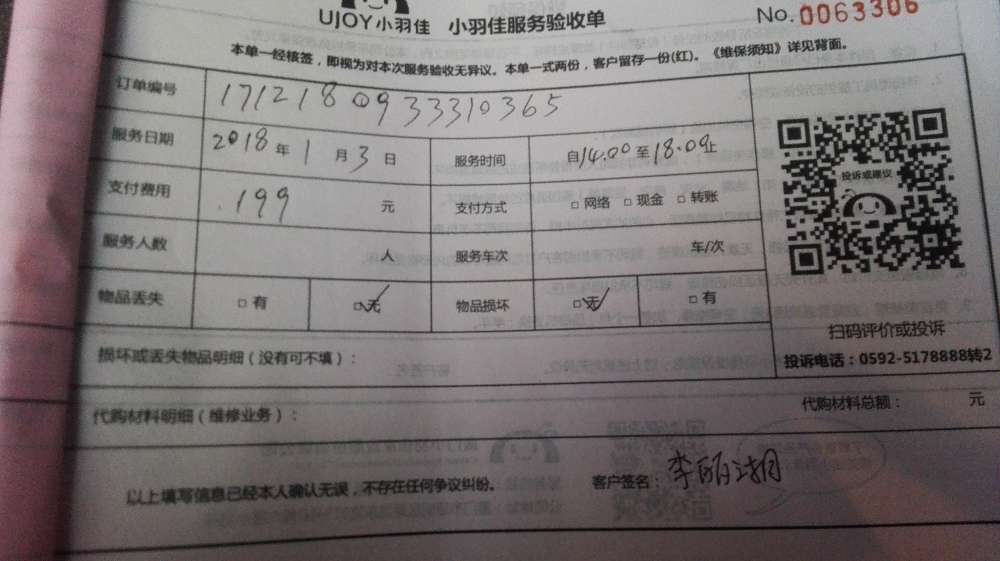 UJOY小羽佳 小羽佳服务验收单 No.0063306
本单一经核签，即视为对本次服务验收无异议。本单一式两份，客户留存一份(红)。《维保须知》详见背面。
订单编号 1712180933310365
服务日期 2018年1月3日 服务时间 自14.00至18.00止
支付费用 199 元 支付方式 □网络 □现金 □转账
服务人数 人 服务车次 车/次
物品丢失 □有 ☑无 物品损坏 ☑无 □有
投诉或建议
扫码评价或投诉
投诉电话：0592-5178888转2
损坏或丢失物品明细（没有可不填）：
代购材料明细（维修业务）： 代购材料总额： 元
以上填写信息已经本人确认无误，不存在任何争议纠纷。 客户签名：李丽湖